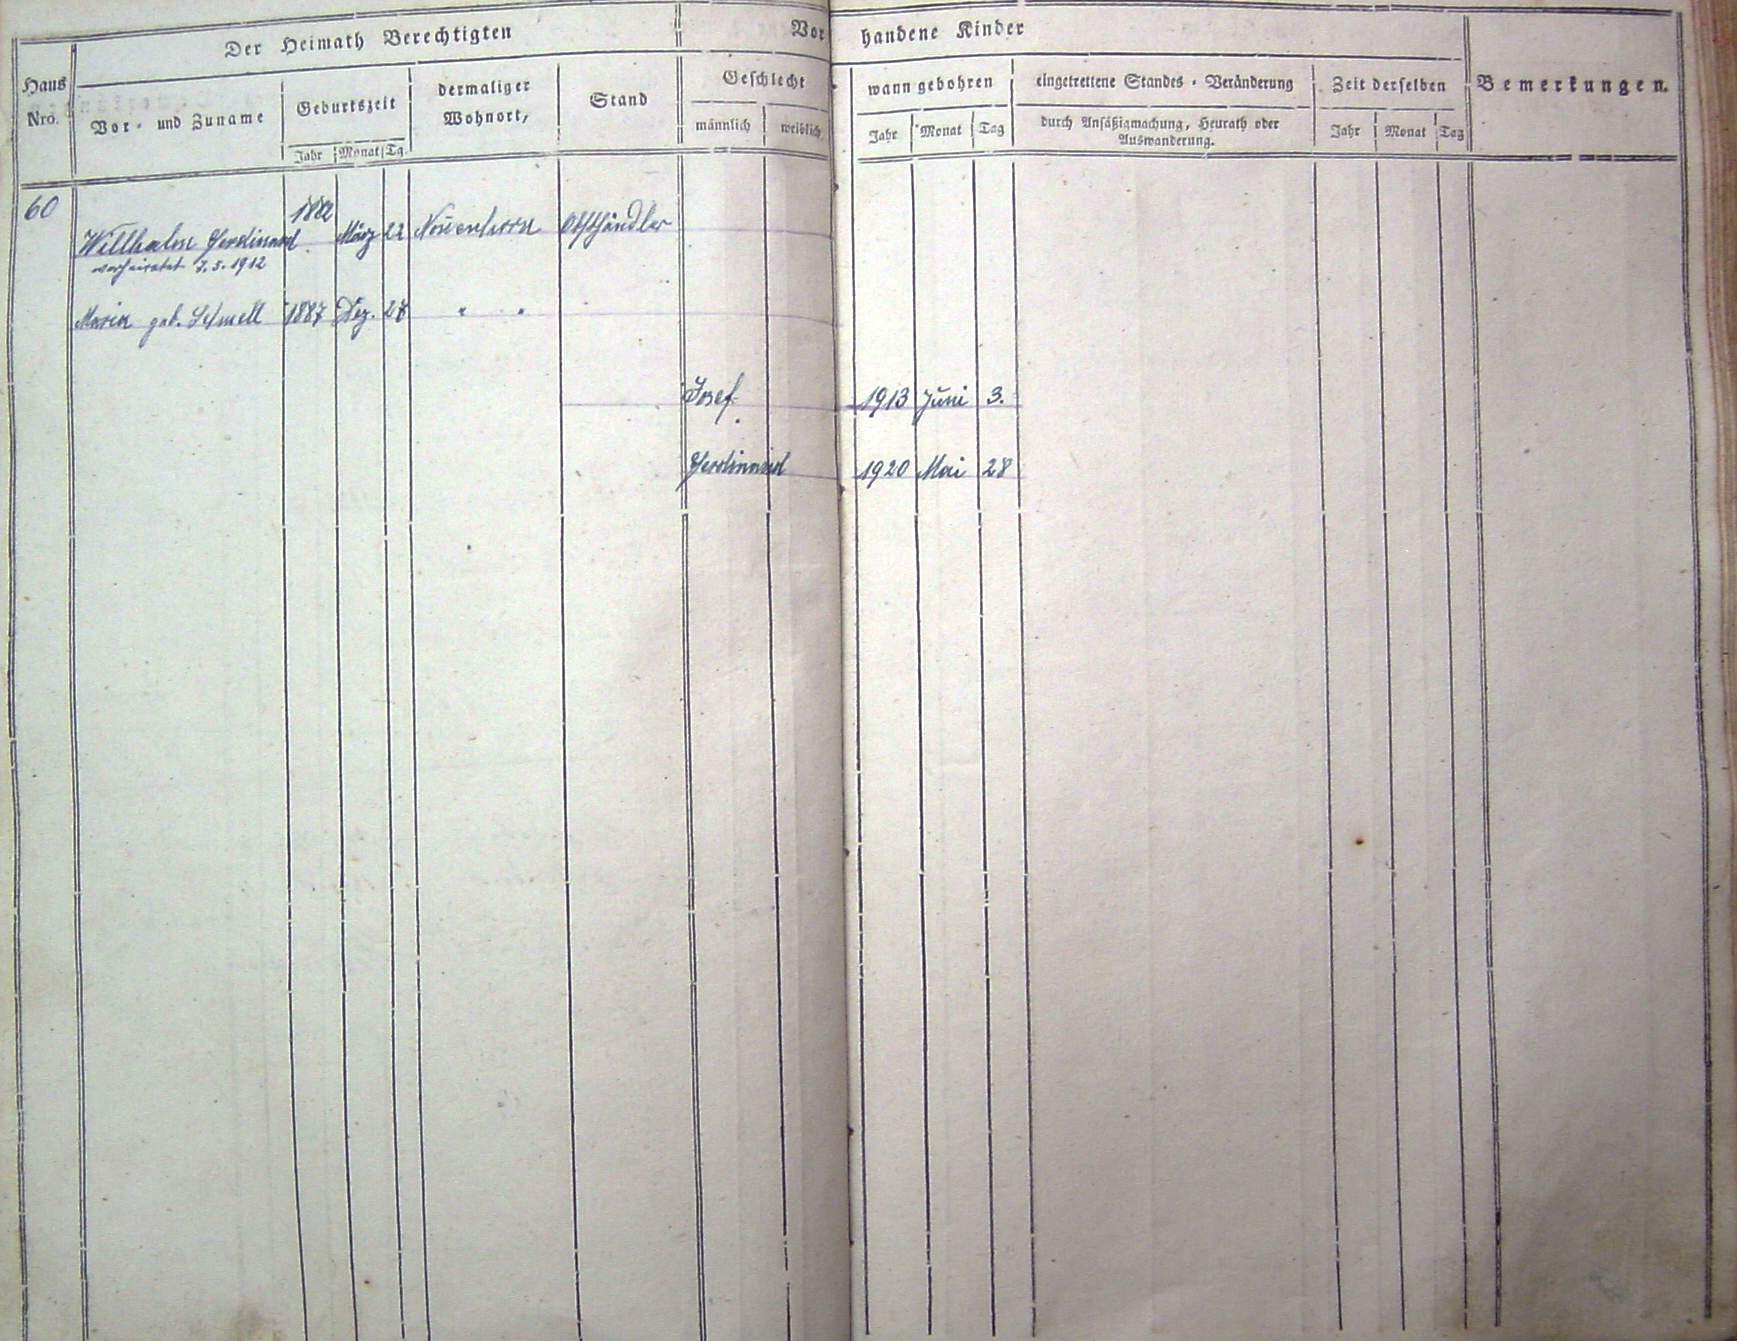 Der Heimath Berechtigten
Vorhandene Kinder
Haus Nro.
Vor- und Zuname
Geburtszeit
Jahr Monat Tg.
dermaliger Wohnort,
Stand
Geschlecht
männlich weiblich
wann gebohren
Jahr Monat Tag
eingetrettene Standes-Veränderung
durch Ansäßigmachung, Heurath oder
Auswanderung.
Zeit derselben
Jahr Monat Tag
Bemerkungen.
60
Willhalm Ferdinand März 22 Obsthändler
verheiratet 7.5.1912
Maria geb. 1887 Dez. " "
Josef 1913 Juni 3.
Ferdinand 1920 Mai 28